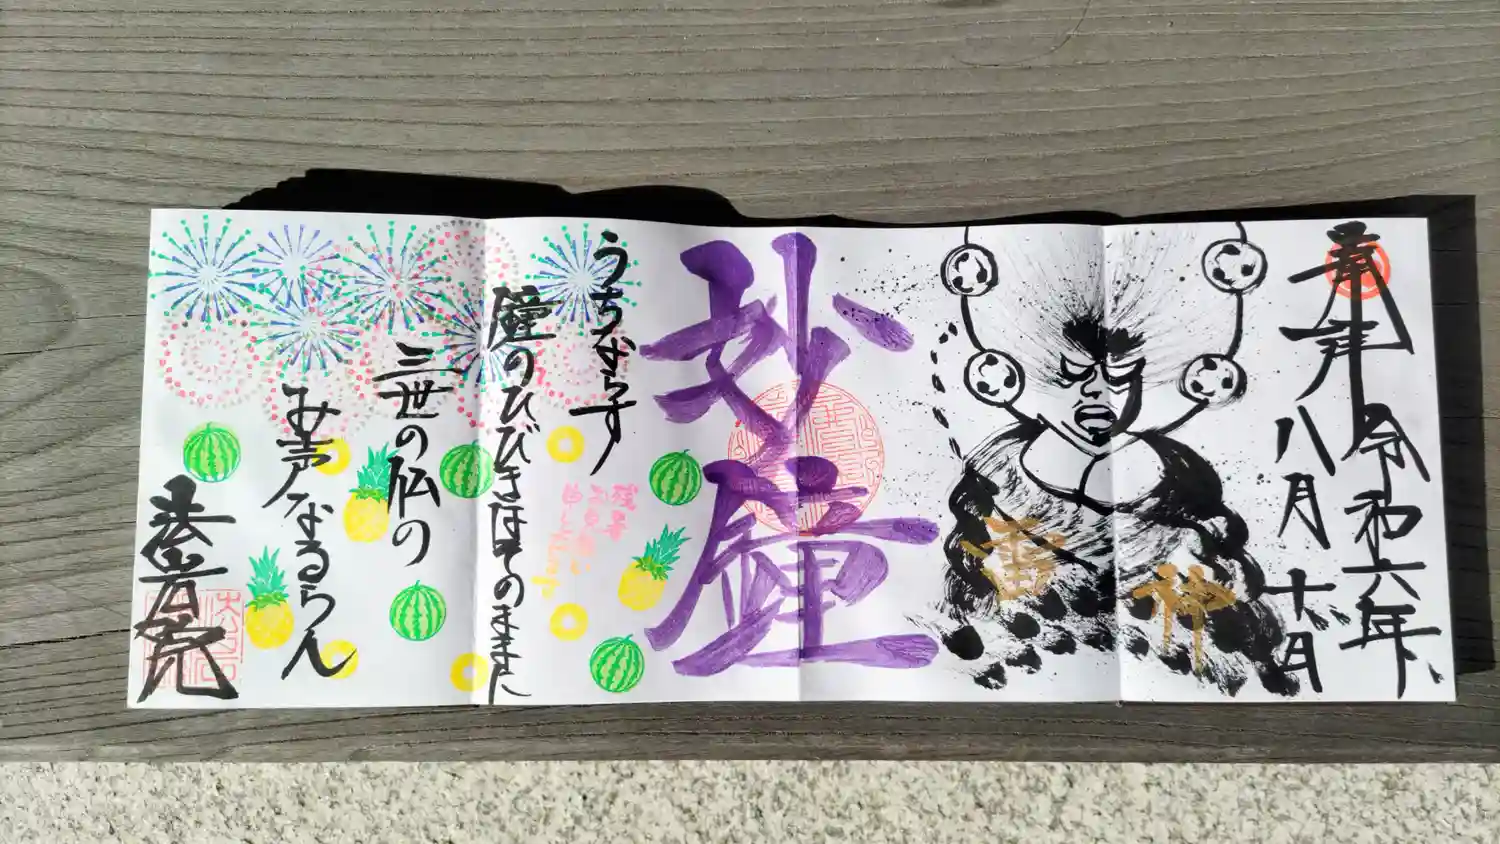 奉拝 令和六年
八月
雷神
妙鐘
うちならす
残暑
お見舞い
申し上げます
鐘のひびきはそのままに
三世の仏の
み声なるらん
法岩院